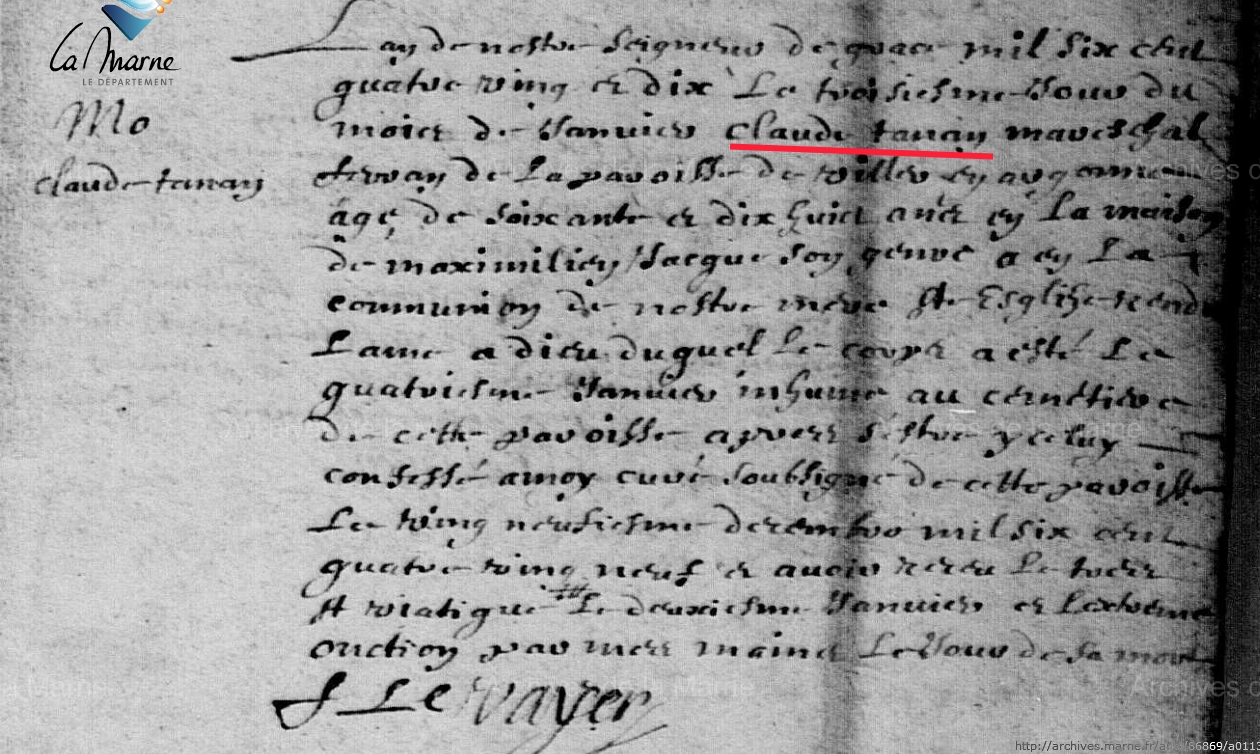 La Marne
LE DÉPARTEMENT
Lan de nostre seigneur de grace mil six cent
quatre ving et dix Le troisiesme Jour du
Mo
claude tanay
mois de Janvier claude tanay mareschal
ferran de La paroisse de villers en argonne
âgé de soixante et dix huict ans en La maison
de maximilien Jacque son genre a en La
communion de nostre mere Ste Esglise rendu
Lame a dieu duquel Le corps a esté Le
quatriesme Janvier inhumé au cemetiere
de cette paroisse apres sestre yceluy
confessé a moy curé soubsigné de cette paroisse
Le ving neufiesme decembre mil six cent
quatre ving neuf et avoir receu Le tres
St viatique Le deuxiesme Janvier et Lextreme
onction par mes mains Le Jour de sa mort
J Le vayer
http://archives.marne.fr/